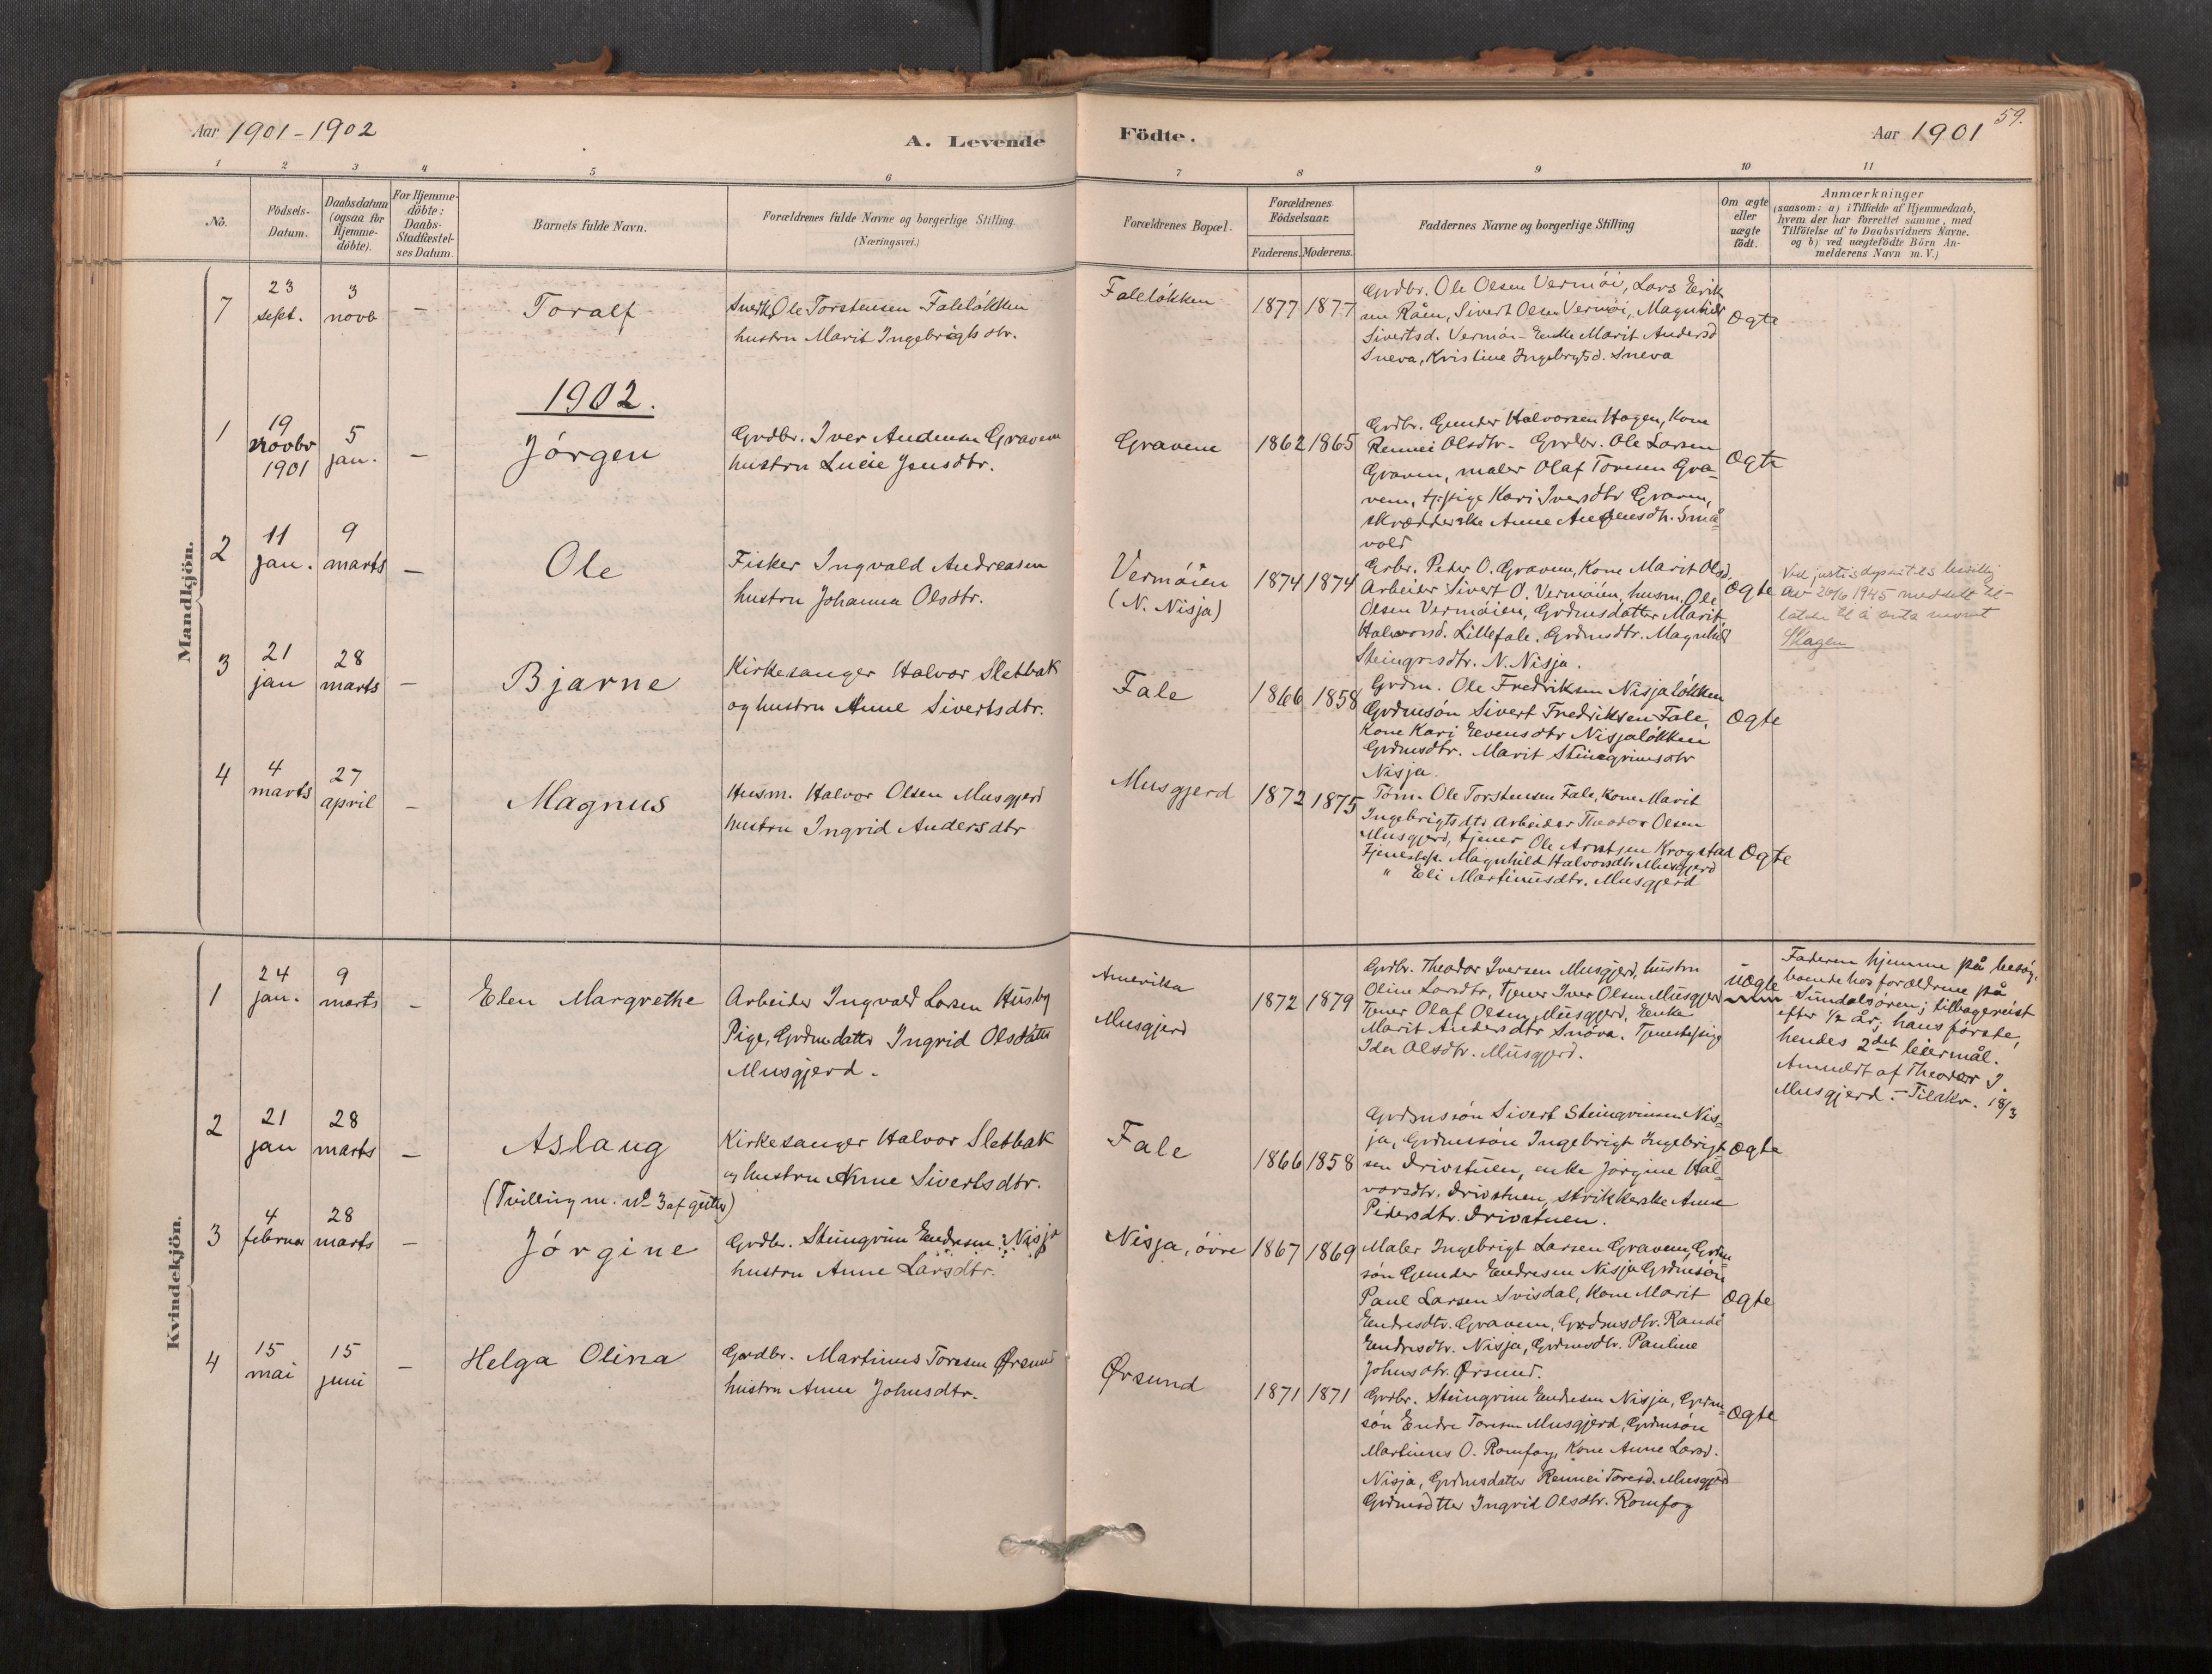 59.
Aar 1901-1902
A. Levende
Födte.
Aar 1901
1 2 3 4 5 6 7 8 9 10 11
No.
Födsels-Datum.
Daabsdatum (ogsaa for Hjemme-döbte).
For Hjemme-döbte: Daabs-Stadfæstel-ses Datum.
Barnets fulde Navn.
Forældrenes fulde Navne og borgerlige Stilling.
(Næringsvei.)
Forældrenes Bopæl.
Forældrenes Födselsaar.
Faderens. Moderens.
Faddernes Navne og borgerlige Stilling
Om ægte eller uægte födt.
Anmærkninger
(saasom: a) i Tilfælde af Hjemmedaab,
hvem der har forrettet samme, med
Tilföielse af to Daabsvidners Navne.
og b) ved uægtefödte Börn An-
melderens Navn m. V.)
Mandkjön.
7
23 sept.
3 novb
-
Toralf
Snedk. Ole Torstensen Faleløkken
hustru Marit Ingebrigtsdtr.
Faleløkken
1877 1877
Grdbr. Ole Olsen Vermøi, Lars Erik
sen Råen, Sivert Olsen Vermøi, Magnhild
Sivertsd. Vermøi - Enke Marit Andersd
Sneva, Kristine Ingebrgtsd. Sneva
Ægte
1902.
1
19 novbr 1901
5 jan.
-
Jørgen
Grdbr. Iver Andersen Gravem
hustru Lucie Jensdtr.
Gravem
1862 1865
Grdbr. Gunder Halvorsen Hagen, Kone
Rennei Olsdtr. - Grdbr. Ole Larsen
Gravem, maler Olaf Toresen Gra-
vem, tj.pige Kari Iversdtr Gravem,
skrædderske Anne Små-
vold
Ægte
2
11 jan.
9 marts
-
Ole
Fisker Ingvald Andreasen
hustru Johanna Olsdtr.
Vermøien
(N. Nisja)
1874 1874
Grbr. Peder O. Gravem, Kone Marit Olsd.
Arbeider Sivert O. Vermøien, husm. Ole
Olsen Vermøien, Grdmsdatter Marit
Halvorsd. Lillefale. Grdmsdtr. Magnhild
Steingrsdtr. N. Nisja.
Ægte
Ved justisdepartets bevillg
av 20/6 1945 meddelt til-
latelse til å anta navnet
Skagen
3
21 jan
28 marts
-
Bjarne
Kirkesanger Halvor Sletbak
og hustru Anne Sivertsdtr.
Fale
1866 1858
Grdm. Ole Fredriksen Nisjaløkken
Grdmsøn Sivert Fredriksen Fale,
Kone Kari Evensdtr Nisjaløkken
Grdmsdtr. Marit Steingrimsdtr
Nisja.
Ægte
4
4 marts
27 april
-
Magnus
Husm. Halvor Olsen Musgjerd
hustru Ingrid Andersdtr
Musgjerd
1872 1875
Tøm. Ole Torstensen Fale, Kone Marit
Ingebrigtsdtr Arbeider Theodor Olsen
Musgjerd, tjener Ole Arntsen Krogstad
Tjenestep. Magnhild Halvorsdtr Musgjerd
" Eli Martinusdtr. Musgjerd
Ægte
Kvindekjön.
1
24 jan.
9 marts
-
Elen Margrethe
Arbeider Ingvald Larsen Husby
Pige, Grdmdatter Ingrid Olsdatter
Musgjerd.
Amerika
Musgjerd
1872 1879
Grdbr. Theodor Iversen Musgjerd, hustru
Oline Larsdtr, Tjener Iver Olsen Musgjerd
Tjener Olaf Olsen Musgjerd, Enke
Marit Andersdtr Snøva. Tjenestepige
Ida Olsdtr. Musgjerd.
Uægte
Faderen hjemme på besøg,
boende hos forældrene på
Sundalsøren; tilbagereist
efter 1/2 år; hans første,
hendes 2det leiermål.
Anmeldt af Theodor I.
Musgjerd. - Tilakr. 18/3
2
21 jan
28 marts
-
Aslaug
(Tvilling m. No 3 af gutter)
Kirkesanger Halvor Sletbak
og hustru Anne Sivertsdtr.
Fale
1866 1858
Grdmssøn Sivert Steingrimsen Nis-
ja, Grdmssøn Ingebrigt Ingebrigt
sen Drivstuen, enke Jørgine Hal-
vorsdtr. Drivstuen, strikkerske Anne
Pedersdtr. Drivstuen.
Ægte
3
4 februar
28 marts
-
Jørgine
Grdbr. Steingrim Endresen Nisja
hustru Anne Larsdtr.
Nisja, øvre
1867 1869
Maler Ingebrigt Larsen Gravem, Grdm-
søn Gunder Endresen Nisja Grdmsøn
Paul Larsen Svisdal, Kone Marit
Endresdtr. Gravem, Grdmsdtr. Randi
Endresdtr. Nisja, Grdmsdtr. Pauline
Johnsdtr. Ørsund.
Ægte
4
15 mai
15 juni
-
Helga Olina
Grdbr. Martinus Toresen Ørsund
hustru Anne Johnsdtr.
Ørsund
1871 1871
Grdbr. Steingrim Endresen Nisja, Grdm-
søn Endre Toresen Musgjerd, Grdmsøn
Martinus O. Romfog, Kone Anne Larsd.
Nisja, Grdmsdatter Rennei Toresd. Musgjerd
Grdmsdtter Ingrid Olsdtr. Romfog
Ægte